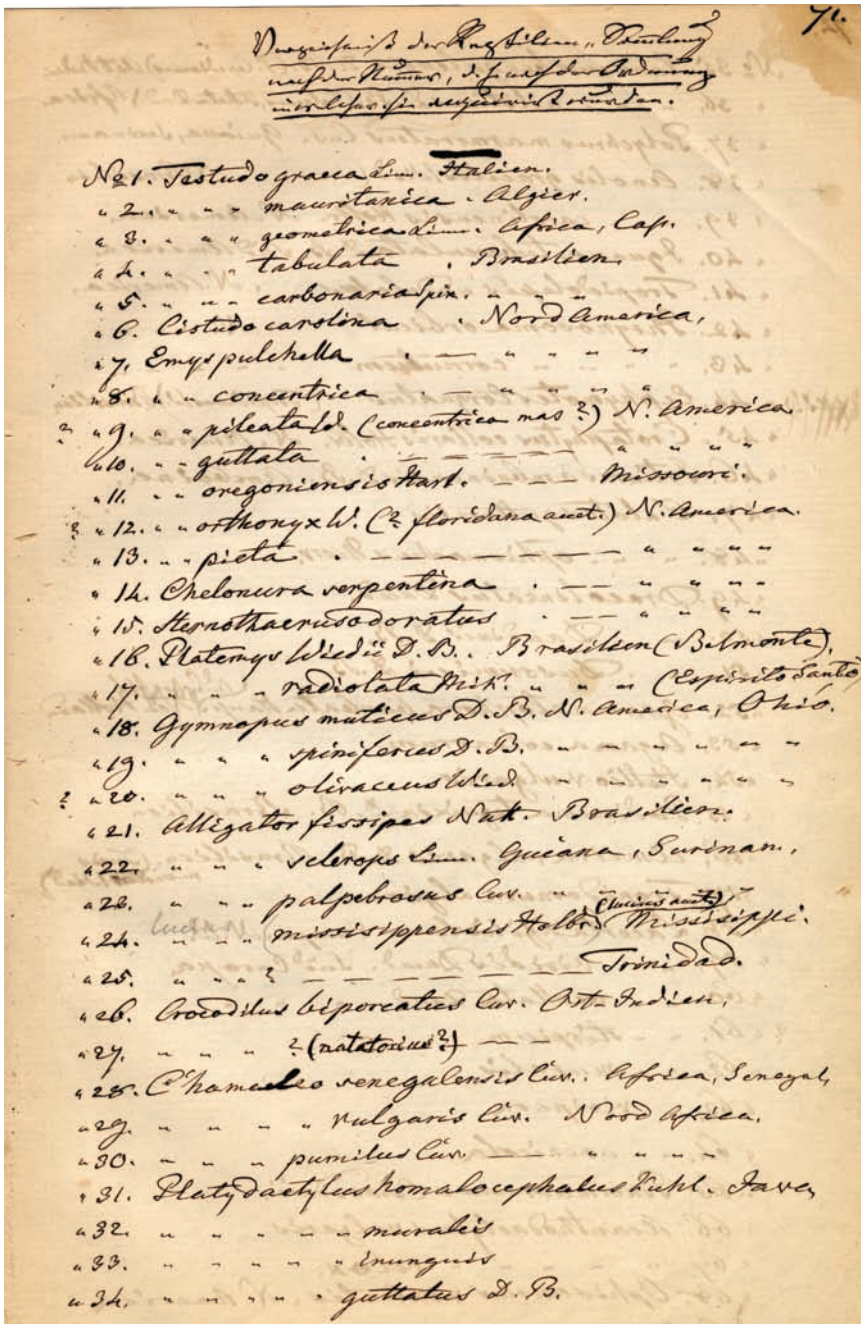 71.
Verzeichniß der Reptilien-Sammlung
nach der Numer, d. h. nach der Ordnung
in welcher sie acquirirt wurden.
No 1. Testudo graeca Linn. Italien.
" 2. " " " mauritanica . Algier.
" 3. " " " geometrica Linn. Africa, Cap.
" 4. " " " tabulata . Brasilien.
" 5. " " " carbonaria Spix. " " "
" 6. Cistudo carolina . Nord America,
" 7. Emys pulchella . — " " " "
" 8. " " concentrica . — " " " "
? " 9. " " pileata W. (concentrica mas ?) N. America.
" 10. " " guttata . — — — — — " " " "
" 11. " " oregoniensis Harl. — — — Missouri.
? " 12. " " orthonyx W. (? floridana auct.) N. America.
" 13. " " picta . — — — — — — — " " " "
" 14. Chelonura serpentina . — — " " " "
" 15. Sternothaerus odoratus . — — " " " "
" 16. Platemys Wiedii D. B. . Brasilien (Belmonte),
" 17. " " " radiolata Mik. " " " (Espirito Santo)
" 18. Gymnopus muticus D. B. N. America, Ohió.
" 19. " " " spiniferus D. B. " " " " "
? " 20. " " " olivaceus Wied. " " " " "
" 21. Alligator fissipes Natt. Brasilien.
" 22. " " " sclerops Linn. Guiana, Surinam.,
" 23. " " " palpebrosus Cuv. " " " "
(lucius auct.)
" 24. lucius " " " (missisippensis Holbr.) Missisippi.
" 25. " " " ? — — — — — — — Trinidad.
" 26. Crocodilus biporcatus Cuv. Ost-Indien,
" 27. " " " ? (natatorius ?) — —
" 28. Chamaeleo senegalensis Cuv. . Africa, Senegal,
" 29. " " " " vulgaris Cuv. Nord Africa.
" 30. " " " pumilus Cuv. — " " "
" 31. Platydactylus homalocephalus Kuhl. Java,
" 32. " " " " " muralis
" 33. " " " " " inunguis
" 34. " " " " " guttatus D. B.